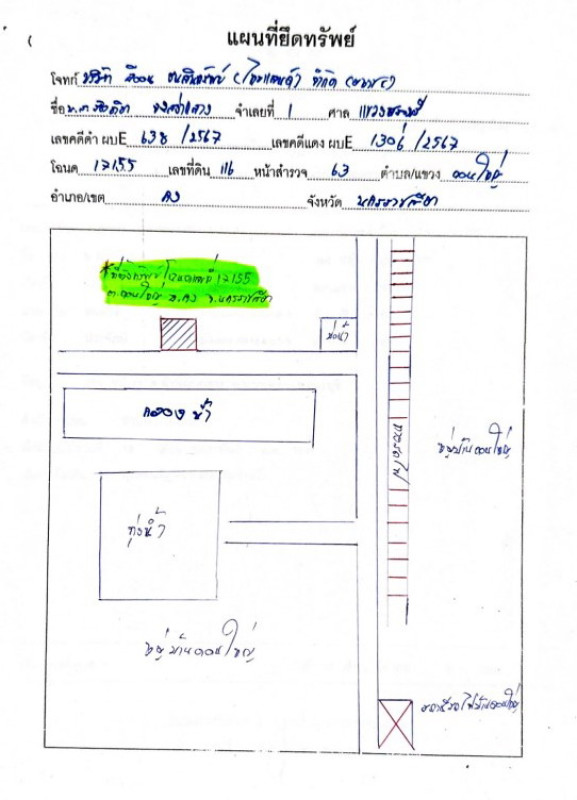 แผนที่ยึดทรัพย์
โจทก์ บริษัท อิออน ธนสินทรัพย์ (ไทยแลนด์) จำกัด (มหาชน)
ชื่อ น.ส. จำเลยที่ 1 ศาล แขวง
เลขคดีดำ ผบE 638 /2567 เลขคดีแดง ผบE 1306 /2567
โฉนด 17155 เลขที่ดิน 116 หน้าสำรวจ 63 ตำบล/แขวง ดอนใหญ่
อำเภอ/เขต คง จังหวัด นครราชสีมา
*ที่ยึดทรัพย์ โฉนดเลขที่ 17155
ต.ดอนใหญ่ อ.คง จ.นครราชสีมา
บ่อน้ำ
คลองน้ำ
ทางรถไฟ
หมู่บ้านดอนใหญ่
ทุ่งนา
หมู่บ้านดอนใหญ่
สถานีรถไฟบ้านดอนใหญ่